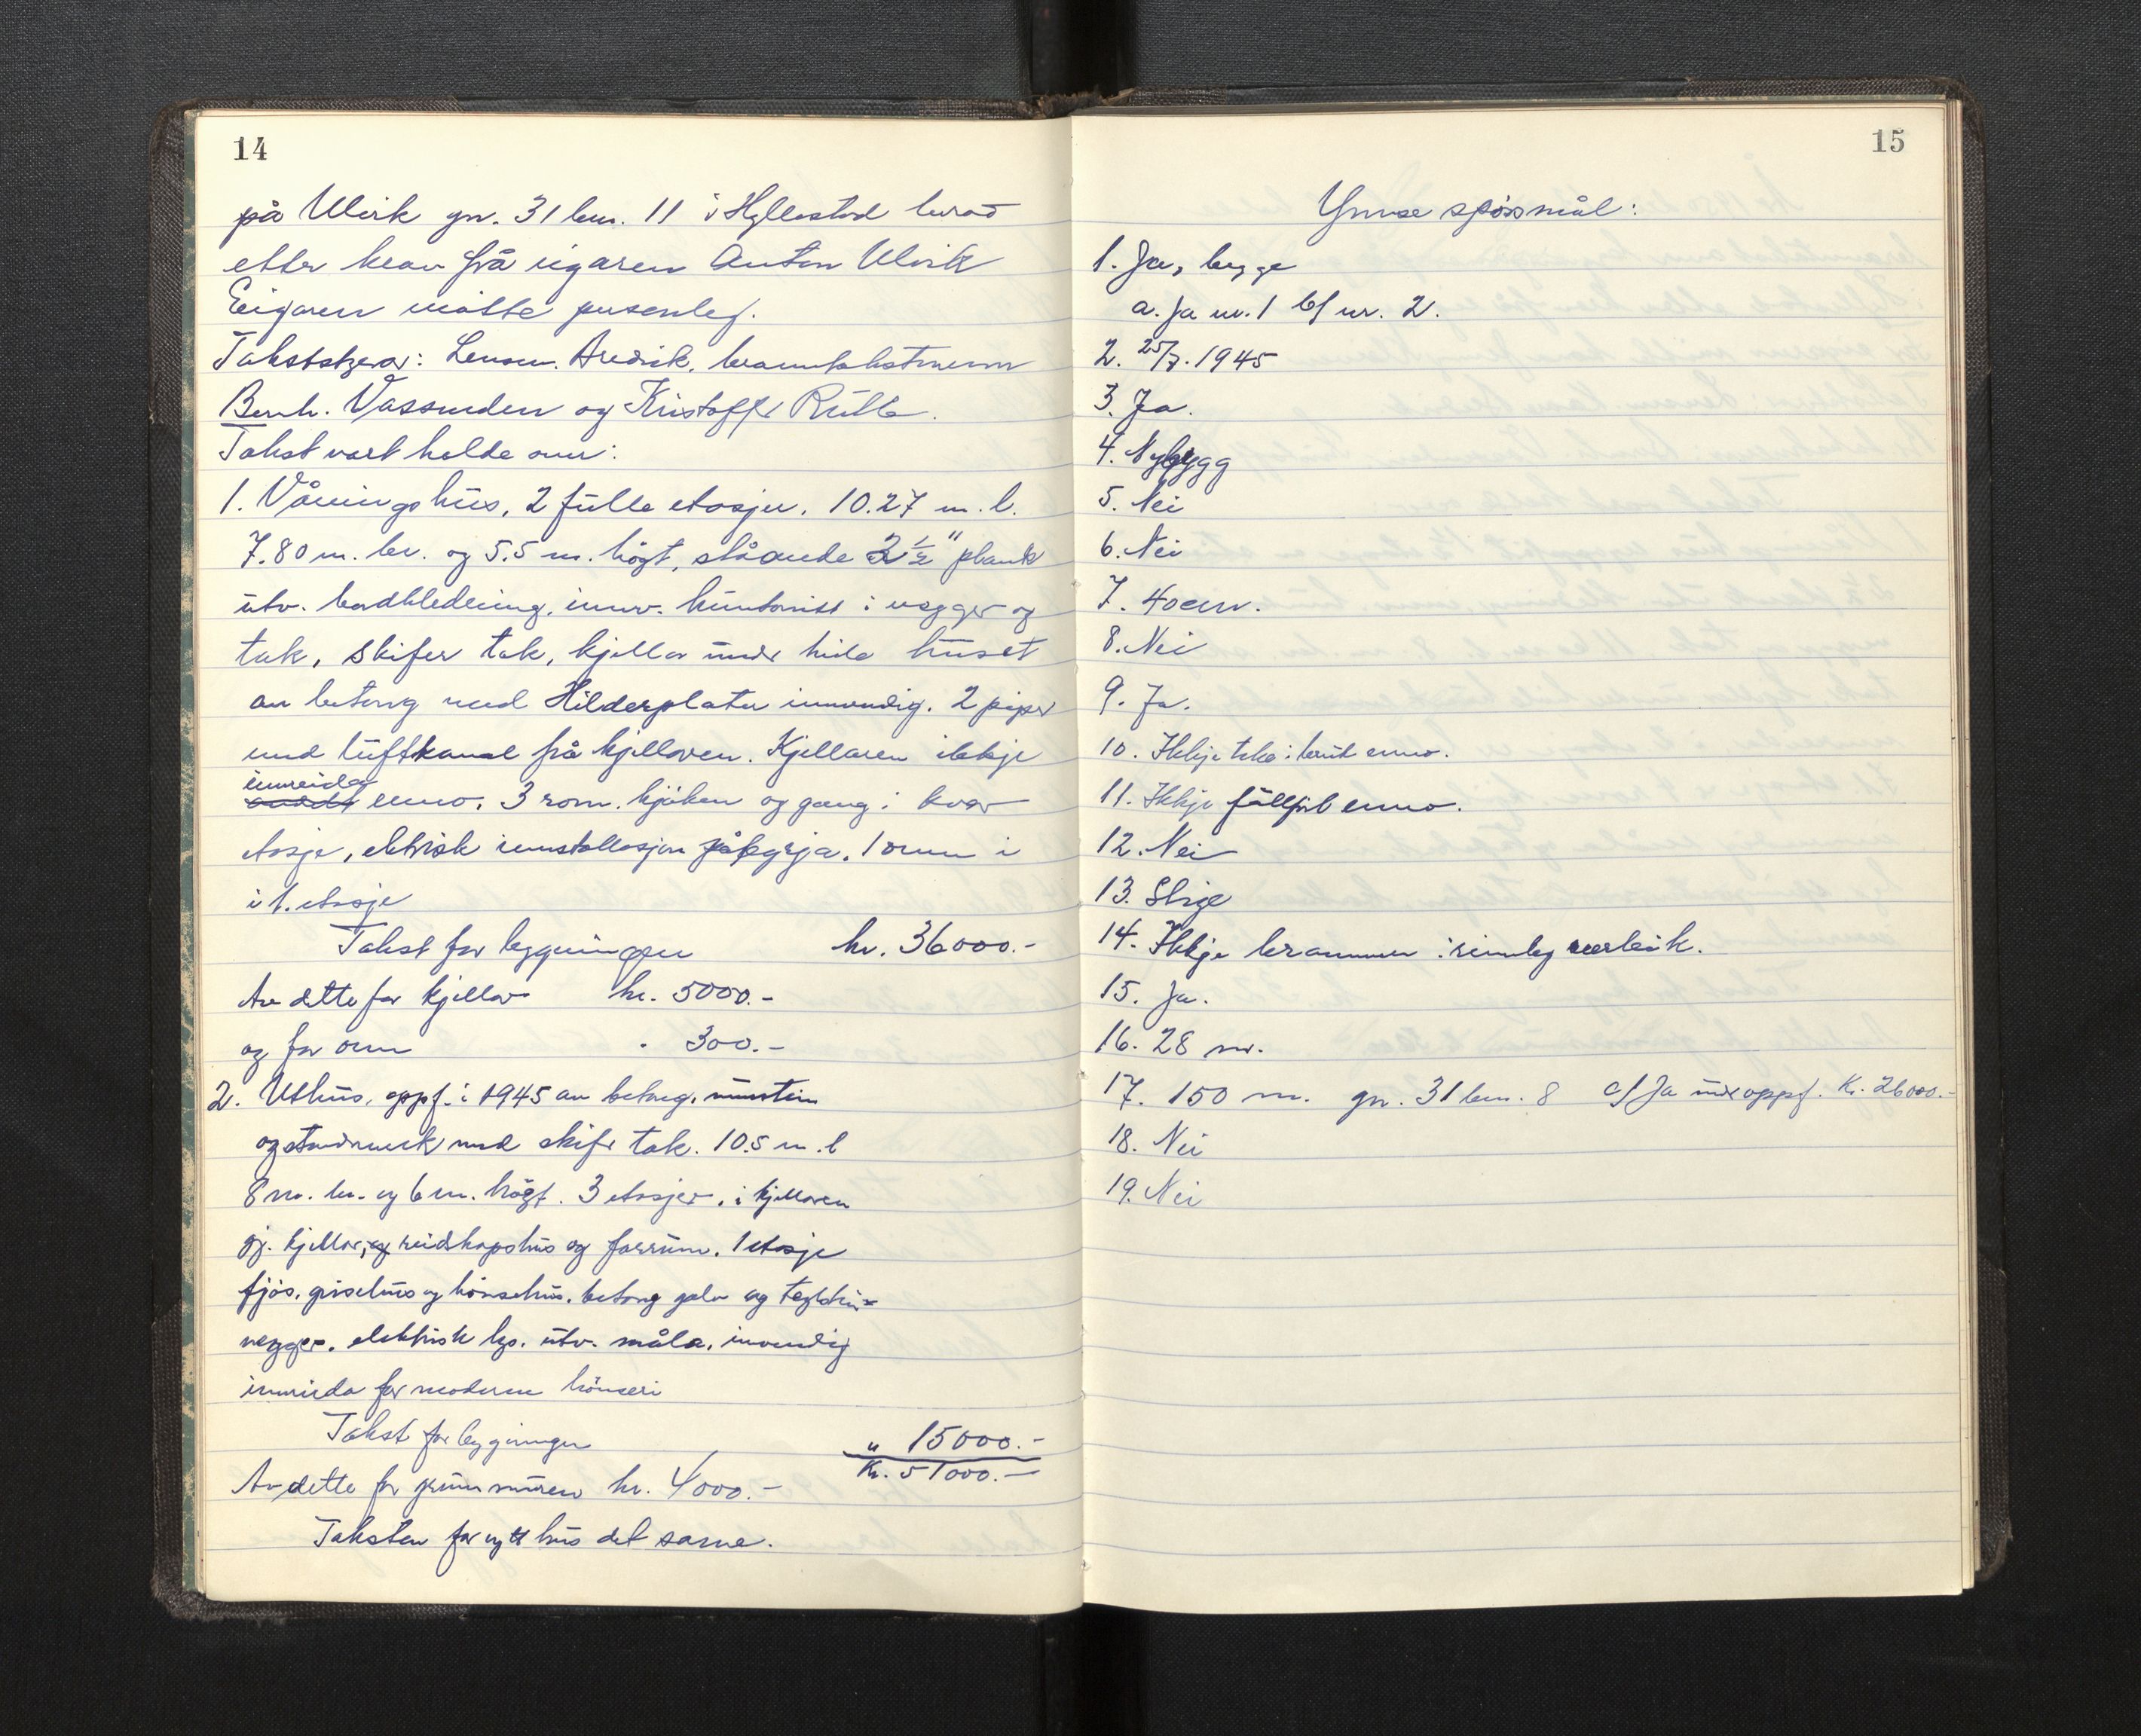 14
på Ulvik gn. 31 bnr. 11 i Hyllestad herad
etter krav frå eigaren Anton Ulvik
Eigaren møtte personleg.
Takstskjøn: Lensm. Aredvik, branntakstmenn
Bernh. Vassenden og Kristoffer Rutle.
Takst vart halde over:
1. Våningshus, 2 fulle etasjer, 10.27 m. l.
7.80 m. br. og 5.5 m. högt, ståande 2 1/2" plank
utv. bordkledning, innv. huntonitt i vegger og
tak, skifer tak, kjellar under heile huset
av betong med Hilderplater innvendig. 2 piper
med luftkanal frå kjellaren. Kjellaren ikkje
innreida enno, 3 rom, kjöken og gang i kvar
etasje, elektrisk innstallasjon påbyrja, 1 omn i
i 1. etasje
Takst for bygningen kr. 36000.-
Av dette for kjellar kr. 5000.-
og for omn " 300.-
2. Uthus, oppf. i 1945 av betong, murstein
og stendverk med skifer tak. 10.5 m. l
8 m. br. og 6 m. högt. 3 etasjer, i kjellaren
gj. kjellar, og reidskapshus og forrum. 1 etasje
fjös, grisehus og hönsehus, betong golv og teglstein
vegger, elektrisk lys, utv. måla, invendig
innreida for moderne hönseri
Takst for bygningen " 15000.-
Kr. 51000.-
Av dette for grunnmuren kr. 4000.-
Taksten for nytt hus det same.
15
Ymse spörsmål:
1. Ja, begge
a. Ja nr. 1 b/ nr. 2.
2. 25/7. 1945
3. Ja.
4. Nybygg
5. Nei
6. Nei
7. 40 cm.
8. Nei
9. Ja.
10. Ikkje teke i bruk enno.
11. Ikkje fullfört enno.
12. Nei
13. Stige
14. Ikkje brannmur i rimeleg nærleik.
15. Ja.
16. 28 m.
17. 150 m. gn. 31 bnr. 8 c/ Ja under oppf. Kr. 26000.-
18. Nei
19. Nei